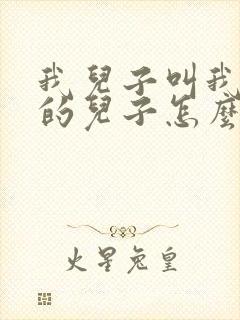 我兒子叫我
的兒子怎麼
火星兔皇